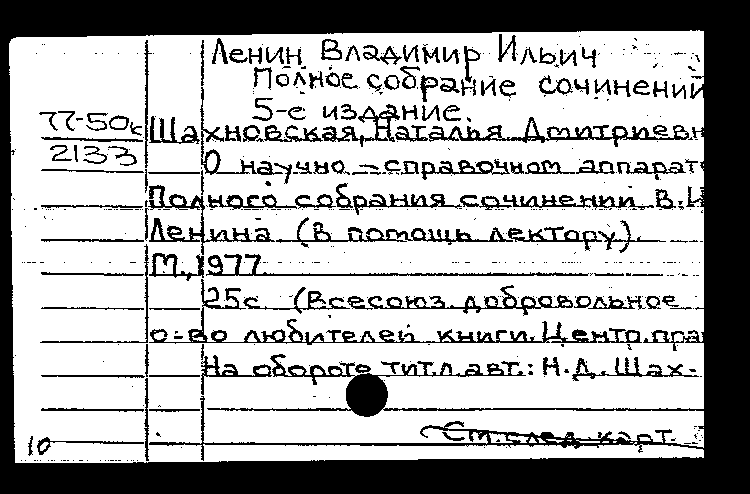 Ленин Владимир Ильич
Полное собрание сочинений
5-е издание.
77-50к
2133
Шахновская, Наталья Дмитриевн
О научно-справочном аппарате
Полного собрания сочинений В.И
Ленина. (В помощь лектору).
М., 1977
25с (Всесоюз. добровольное
о-во любителей книги. Центр. прав
На обороте тит.л. авт.: Н.Д. Шах-
См. след. карт.
10